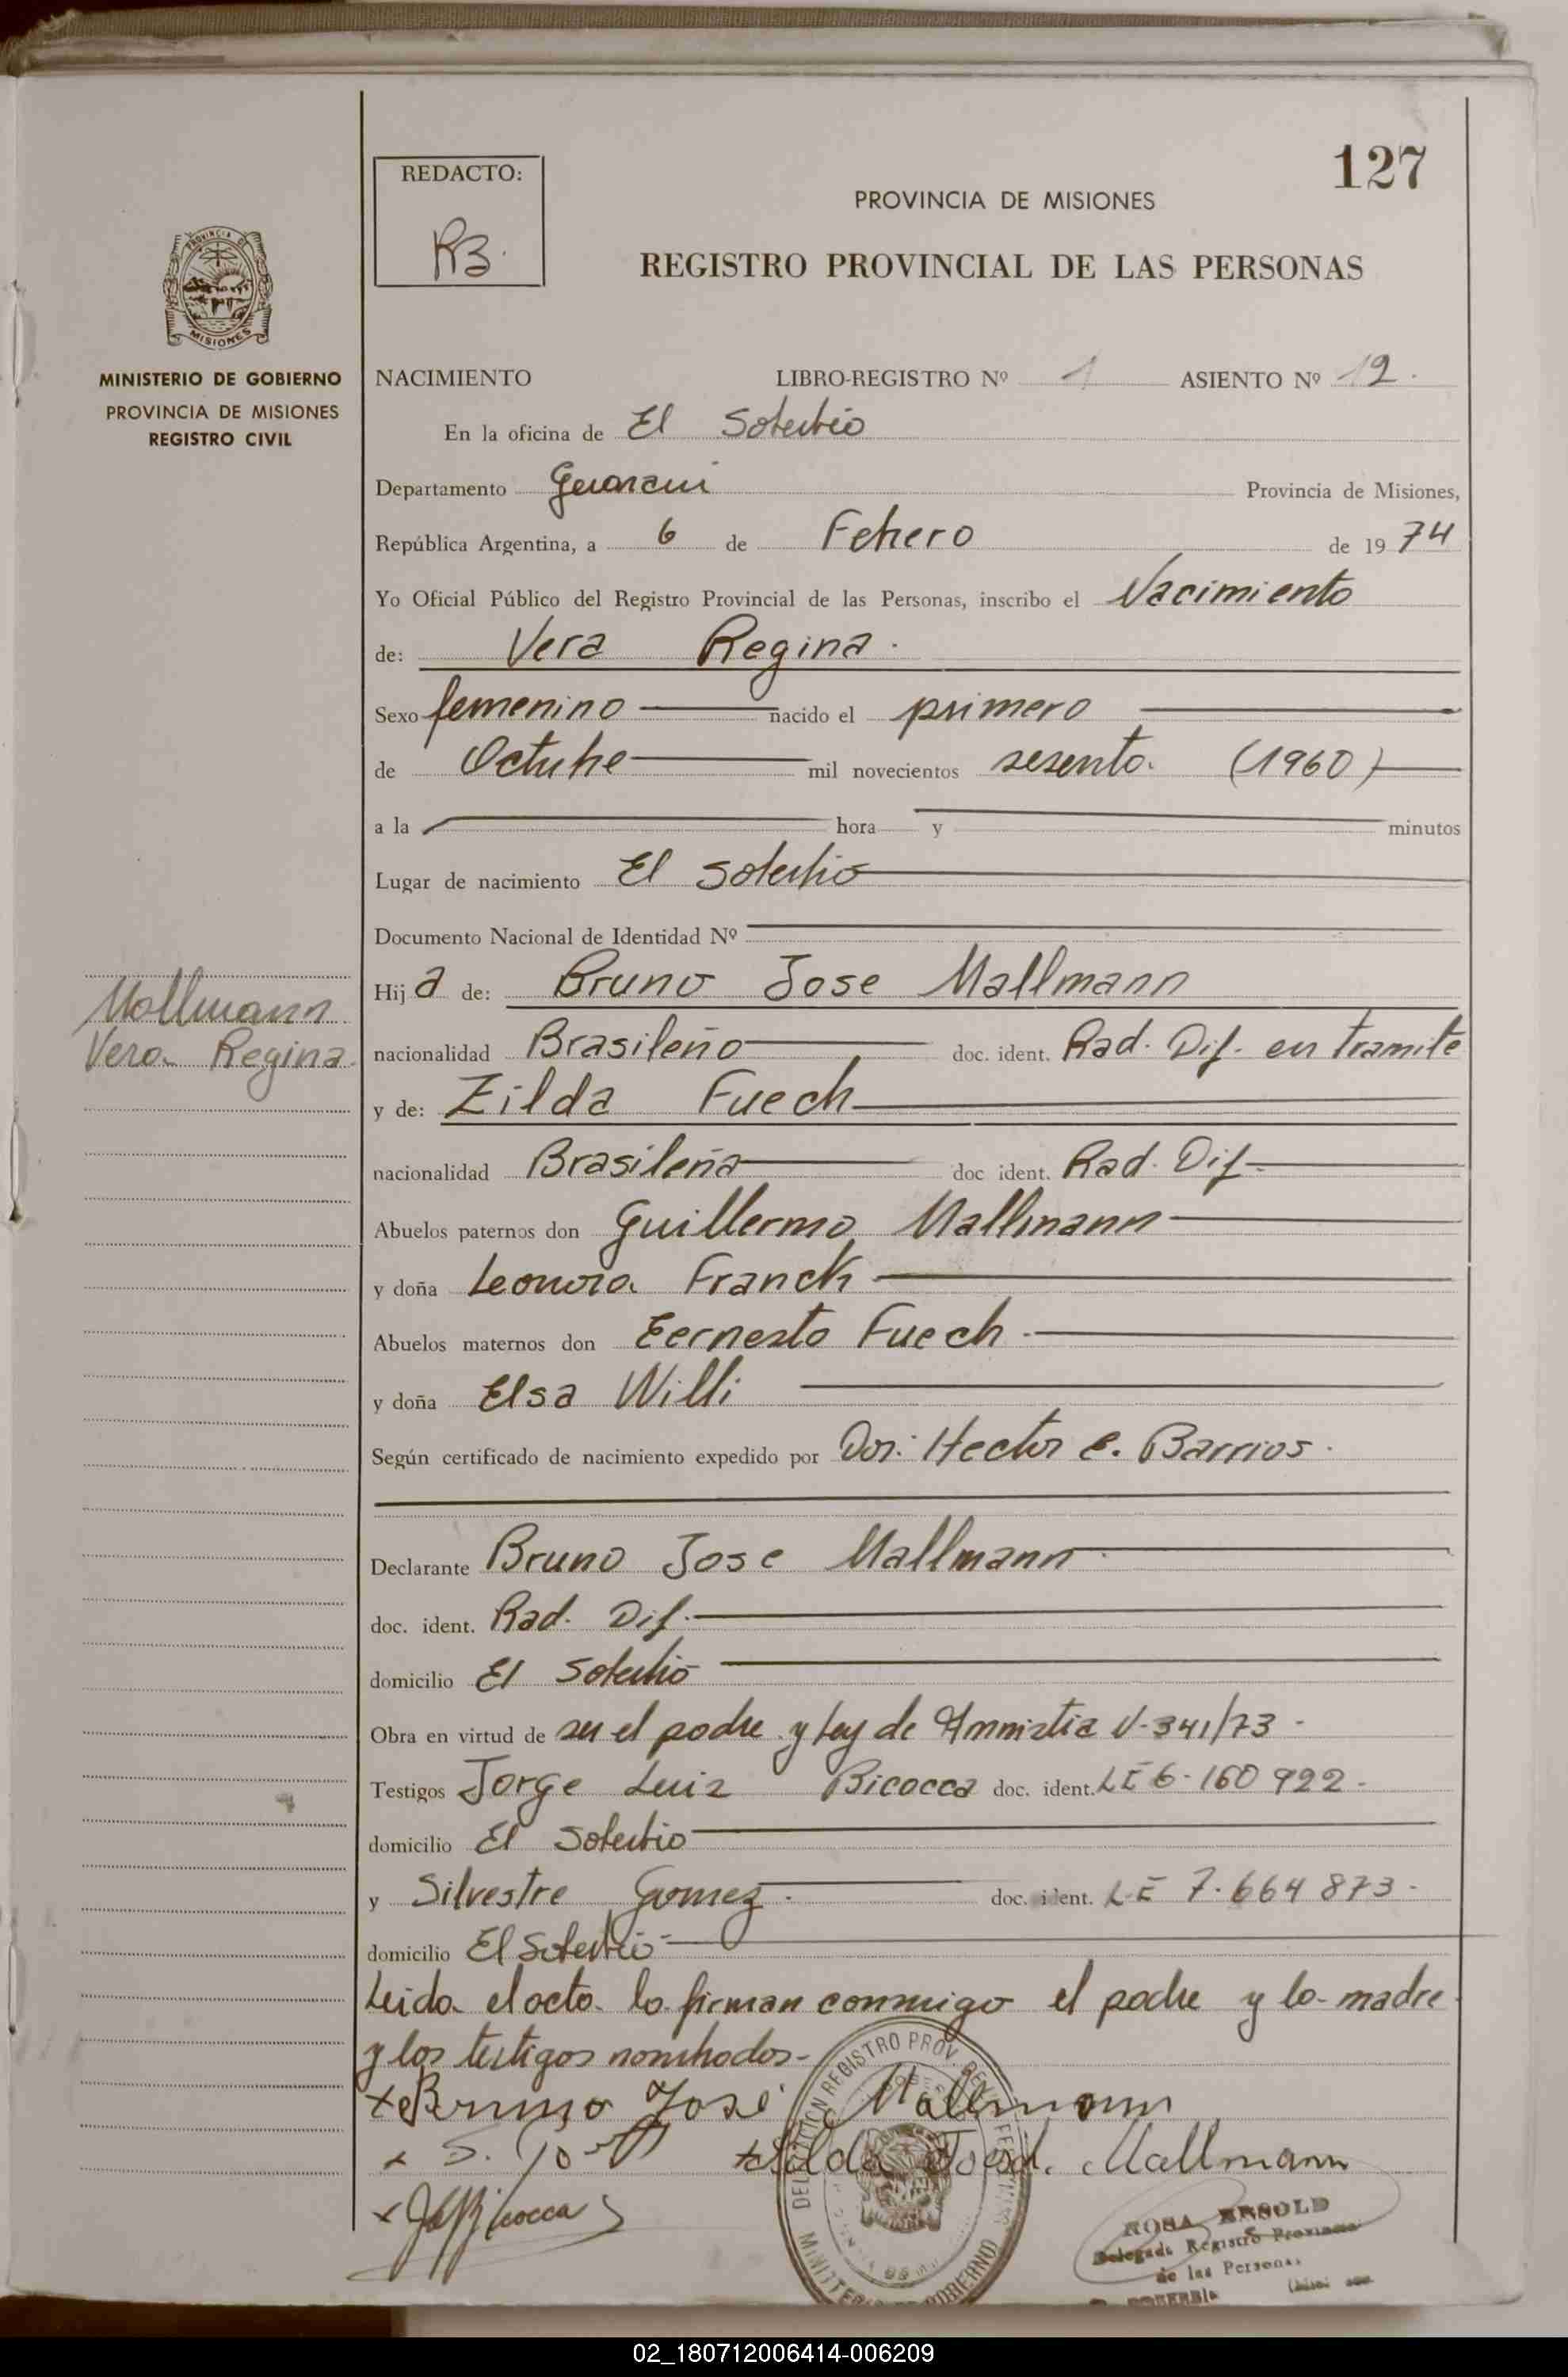 127
REDACTO:
RB.
PROVINCIA DE MISIONES
REGISTRO PROVINCIAL DE LAS PERSONAS
PROVINCIA DE
MISIONES
MINISTERIO DE GOBIERNO
PROVINCIA DE MISIONES
REGISTRO CIVIL
NACIMIENTO LIBRO-REGISTRO Nº 1 ASIENTO Nº 12.
En la oficina de El Soberbio
Departamento Guarani Provincia de Misiones,
República Argentina, a 6 de Febrero de 1974
Yo Oficial Público del Registro Provincial de las Personas, inscribo el Nacimiento
de: Vera Regina.
Sexo femenino nacido el primero
de Octubre mil novecientos sesenta. (1960)
a la hora y minutos
Lugar de nacimiento El Soberbio
Documento Nacional de Identidad Nº
Hija de: Bruno Jose Mallmann
Mallmann
Vera Regina.
nacionalidad Brasileño doc. ident. Rad. Dif. en tramite
y de: Zilda Fuech
nacionalidad Brasileña doc ident. Rad. Dif.
Abuelos paternos don Guillermo Mallmann
y doña Leonora Franck
Abuelos maternos don Eernesto Fuech.
y doña Elsa Willi
Según certificado de nacimiento expedido por Dor. Hector E. Barrios.
Declarante Bruno Jose Mallmann
doc. ident. Rad. Dif.
domicilio El Soberbio
Obra en virtud de ser el padre y Ley de Amnistia V-341/73 -
Testigos Jorge Luis Bicocca doc. ident. LE 6.160922.
domicilio El Soberbio
y Silvestre Gomez. doc. ident. LE 7.664873.
domicilio El Soberbio
Leida el acta la firman conmigo el padre y la madre
y los testigos nombrados.-
x Bruno José Mallmann
x Silda Mallmann
ROSA ERSOLD
Delegada Registro Provincial
de las Personas
02_180712006414-006209